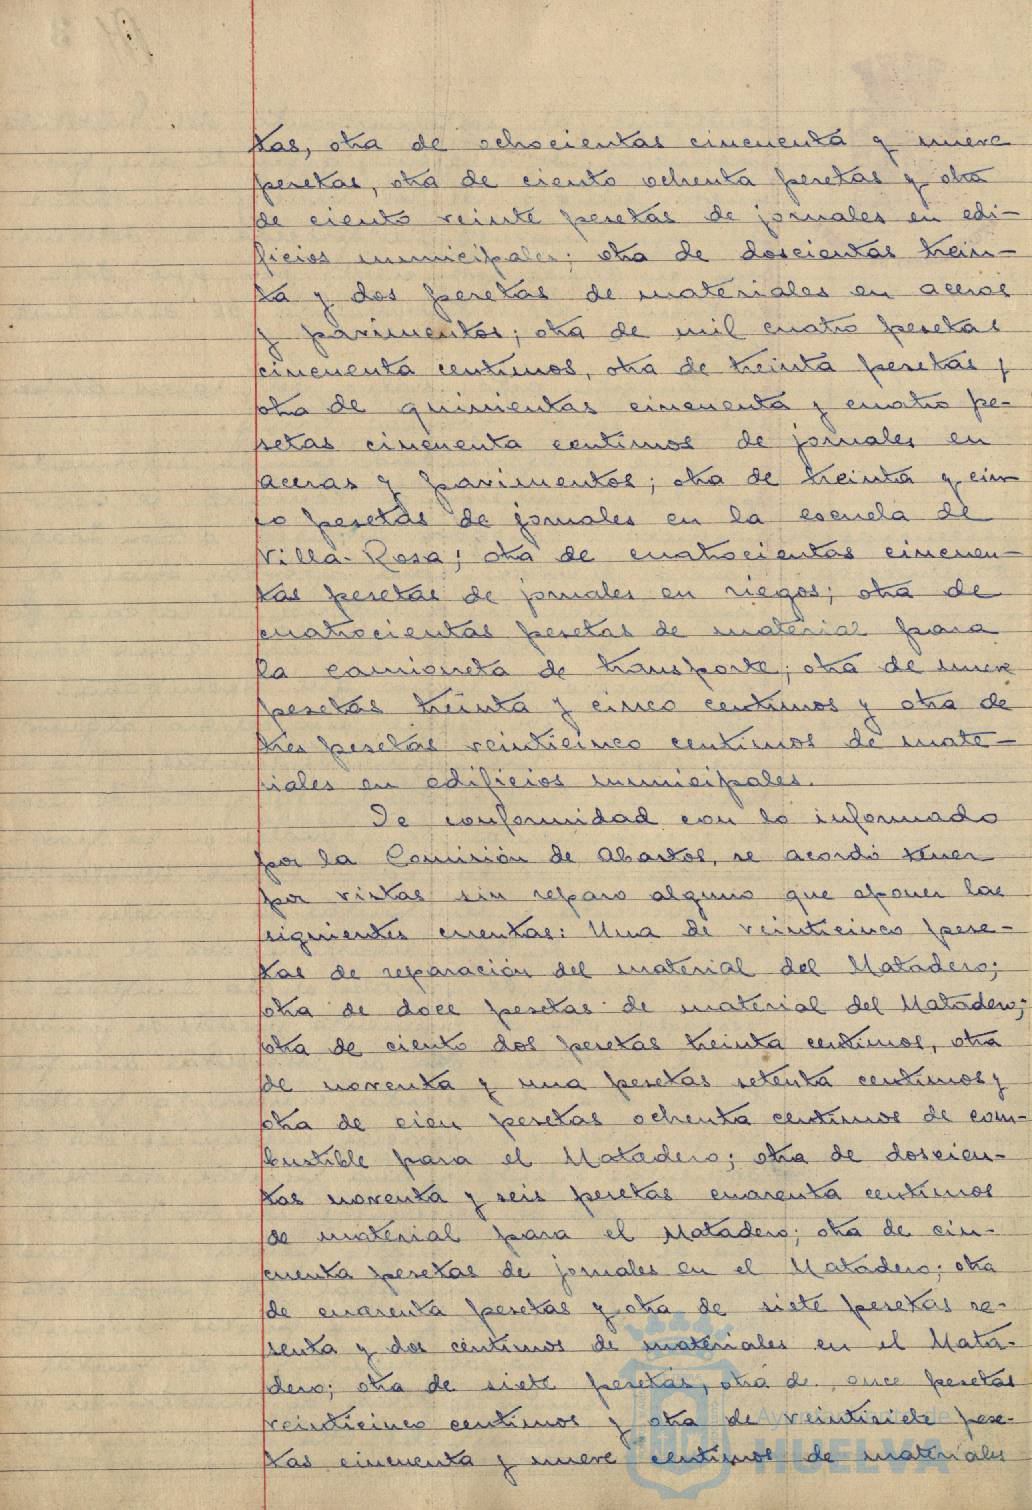 tas, otra de ochocientas cincuenta y nueve
pesetas, otra de ciento ochenta pesetas y otra
de ciento veinte pesetas de jornales en edi-
ficios municipales; otra de doscientas trein-
ta y dos pesetas de materiales en aceras
y pavimentos; otra de mil cuatro pesetas
cincuenta centimos, otra de treinta pesetas y
otra de quinientas cincuenta y cuatro pe-
setas cincuenta centimos de jornales en
aceras y pavimentos; otra de treinta y cin-
co pesetas de jornales en la escuela de
Villa-Rosa; otra de cuatrocientas cincuen-
tas pesetas de jornales en riegos; otra de
cuatrocientas pesetas de material para
la camioneta de transporte; otra de nueve
pesetas treinta y cinco centimos y otra de
tres pesetas veinticinco centimos de mate-
riales en edificios municipales.
De conformidad con lo informado
por la Comisión de Abastos, se acordó tener
por vistas sin reparo alguno que oponer las
siguientes cuentas: Una de veinticinco pese-
tas de reparación del material del Matadero;
otra de doce pesetas de material del Matadero;
otra de ciento dos pesetas treinta centimos, otra
de noventa y una pesetas setenta centimos y
otra de cien pesetas ochenta centimos de com-
bustible para el Matadero; otra de doscien-
tas noventa y seis pesetas cuarenta centimos
de material para el Matadero; otra de cin-
cuenta pesetas de jornales en el Matadero; otra
de cuarenta pesetas y otra de siete pesetas se-
senta y dos centimos de materiales en el Mata-
dero; otra de siete pesetas, otra de once pesetas
veinticinco centimos y otra de veintisiete pese-
tas cincuenta y nueve centimos de materiales
Ayuntamiento de
HUELVA